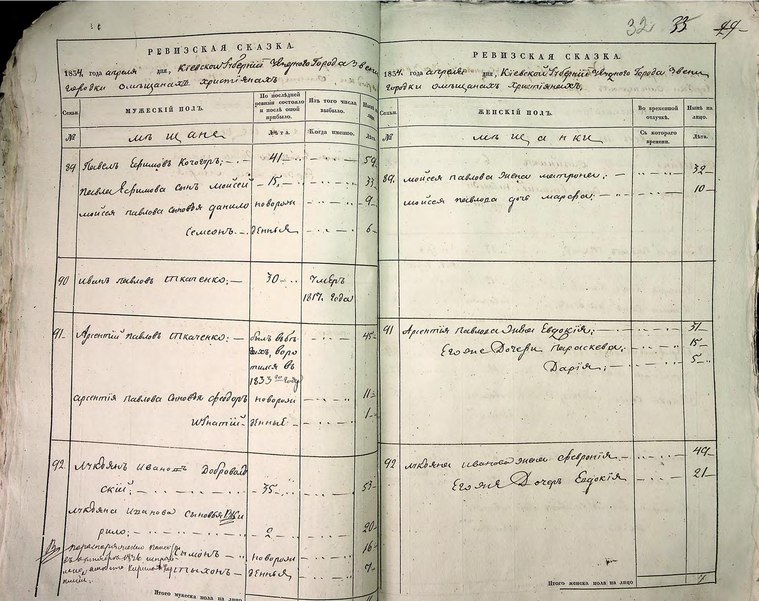 32 33 29
РЕВИЗСКАЯ СКАЗКА.
1834 года апреля дня, Кіевской Губерніи Уезднаго Города Звени
городки о мещанахъ христіянахъ
МУЖЕСКІЙ ПОЛЪ.
По последней ревизіи состояло и после оной прибыло.
Изъ того числа выбыло.
Ныне на лицо.
Семьи.
№
мещане
Лета.
Когда именно.
Лета.
89 Павелъ Ефимовъ Кочегуръ; 41 59
Павла Ефимова сынъ Мойсей 15 33
Мойсея Павлова сыновья Данило новорож 9
Семеонъ денныя 6
90 Иванъ Павловъ Ткаченко; 30 Умеръ
1817. года
91 Арсентій Павловъ Ткаченко; былъ въ бе 45
гахъ, воро
тился въ
1833 году
Арсентія Павлова сыновья Феодоръ новорож 11
Игнатій денные 1
92 Лукьянъ Ивановъ Доброволь
скій; 35 53
Лукьяна Иванова сыновья Ки
рило; 2 20
Симонъ новорож 16
Тыхонъ денныя 7
Итого мужеска пола на лицо
РЕВИЗСКАЯ СКАЗКА.
1834. года апреля дня, Кіевской Губерніи Уезднаго Города Звени
городки о мещанахъ Христіянахъ,
ЖЕНСКІЙ ПОЛЪ.
Во временной отлучке.
Ныне на лицо.
Семьи.
№
мещанки
Съ котораго времени.
Лета.
89. Мойсея Павлова жена Матрона; 32
Мойсея Павлова дочь Марфа; 10
91 Арсентія Павлова жена Евдокія; 37
Его же Дочери Параскева; 15
Дарія; 5
92 Лукьяна Иванова жена Февронія 49
Его же Дочеръ Евдокія 21
Итого женска пола на лицо